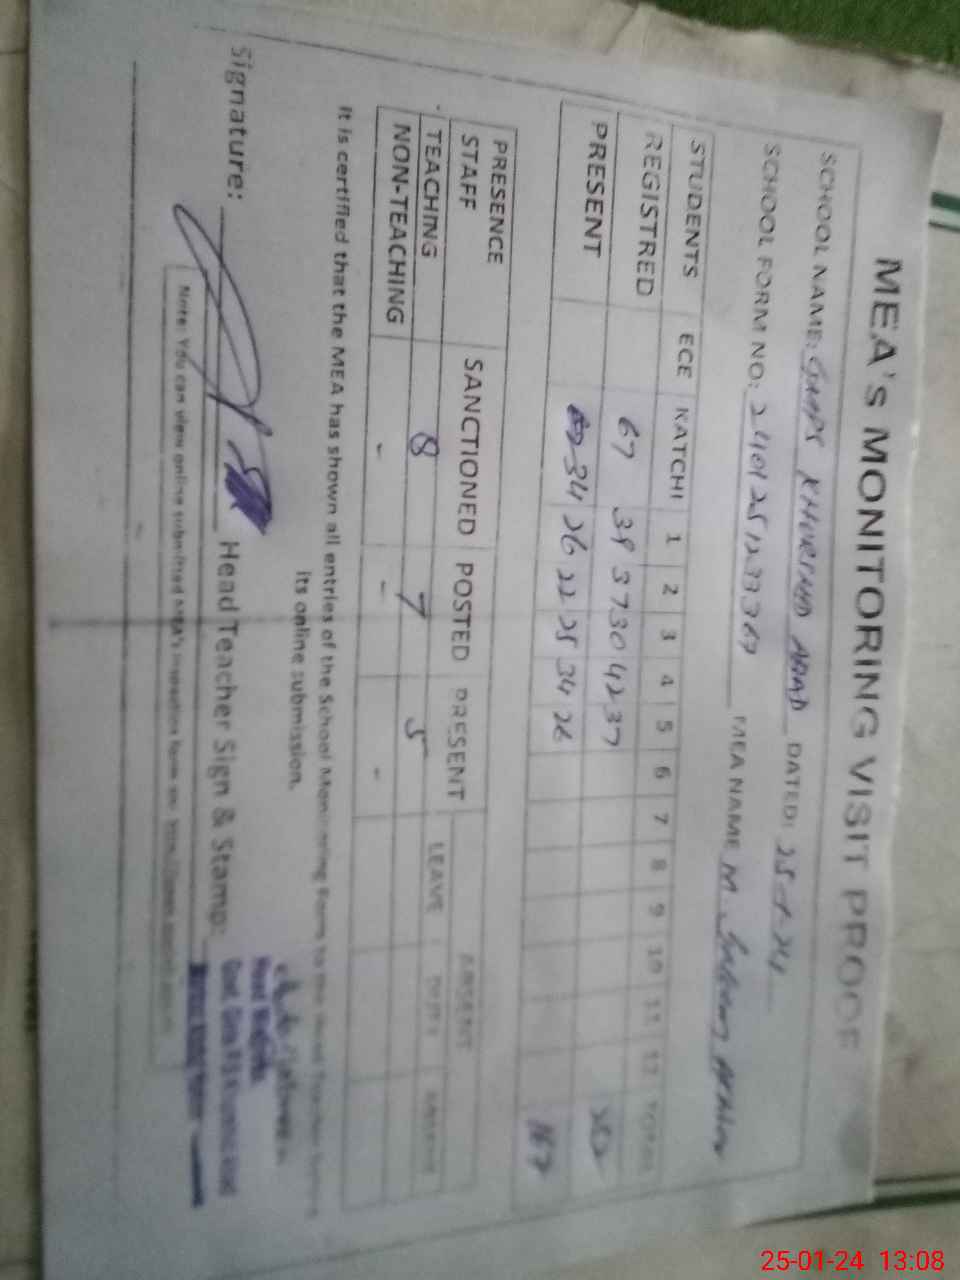 MEA'S MONITORING VISIT PROOF
SCHOOL NAME: GMPS KHURSHID ABAD DATED: 25-1-24
SCHOOL FORM NO: MEA NAME M.
STUDENTS ECE KATCHI 1 2 3 4 5 6 7 8 9 10 11 12 TOTAL
REGISTRED 67 39 37 30 42 37
PRESENT 34 26 22 25 34 26 167
PRESENCE STAFF SANCTIONED POSTED PRESENT ABSENT
LEAVE DUTY ABSENT
TEACHING 8 7 5
NON-TEACHING - - -
It is certified that the MEA has shown all entries of the School Monitoring Form to the Head Teacher before
its online submission.
Signature: Head Teacher Sign & Stamp:
Head
Govt. Girls P/S Khurshid Abad
Note: You can view online submitted MEA's inspection form on
25-01-24 13:08